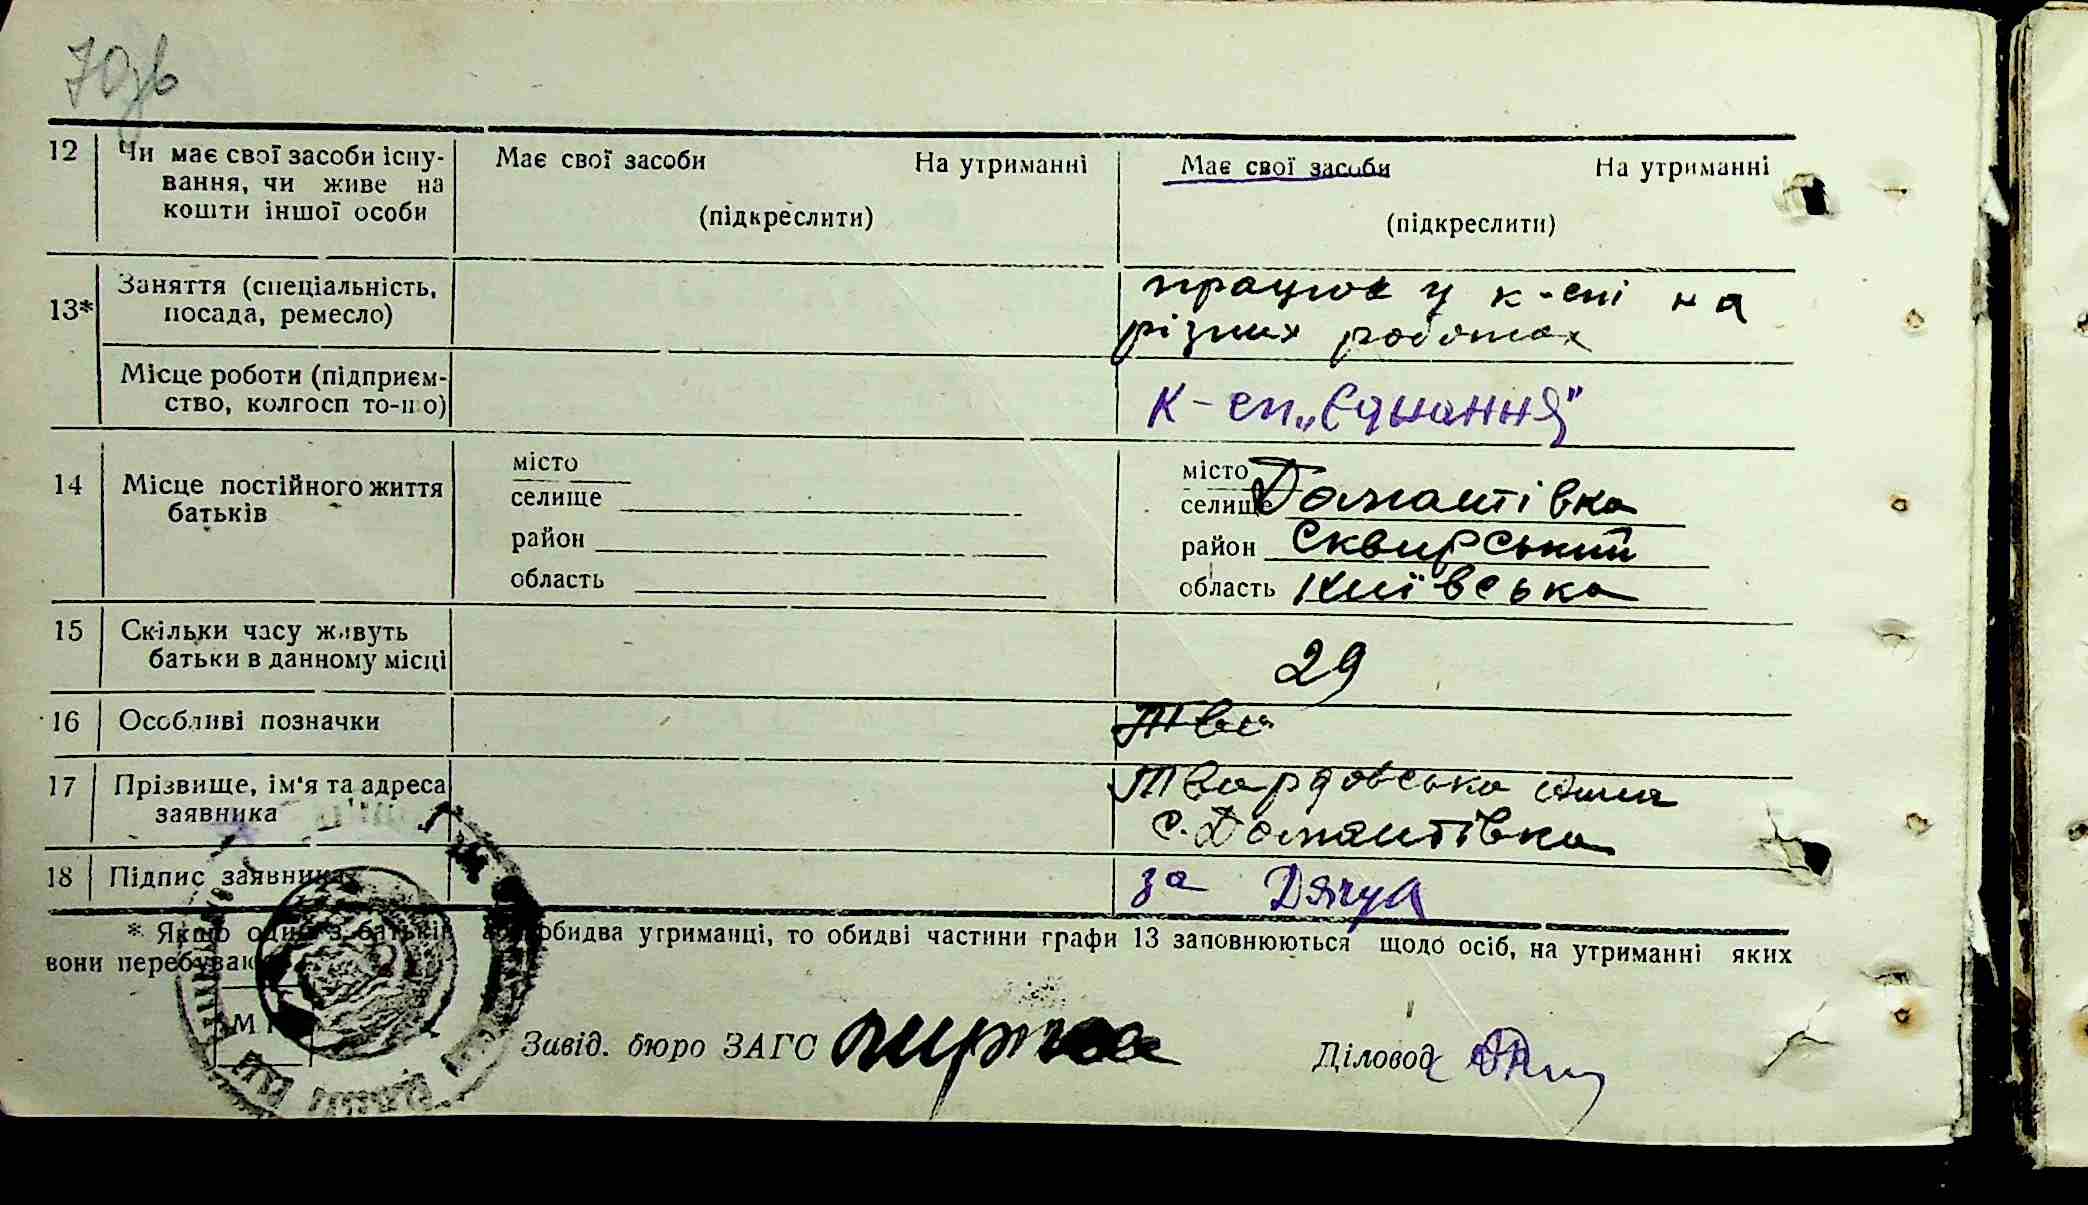 70зв
12 Чи має свої засоби існу- Має свої засоби На утриманні Має свої засоби На утриманні
вання, чи живе на
кошти іншої особи (підкреслити) (підкреслити)
13* Заняття (спеціальність, працює у к-спі на
посада, ремесло) різних роботах
Місце роботи (підприєм-
ство, колгосп то-що) К-сп „Єднання"
14 Місце постійного життя батьків
місто місто
селище селище Домантівка
район район Сквирський
область область Київська
15 Скільки часу живуть
батьки в данному місці 29
16 Особливі позначки Тва
17 Прізвище, ім'я та адреса Твардовська Анна
заявника с. Домантівка
18 Підпис заявника за
* Якщо один з батьків або обидва утриманці, то обидві частини графи 13 заповнюються щодо осіб, на утриманні яких
вони перебувають
М П
Завід. бюро ЗАГС Діловод